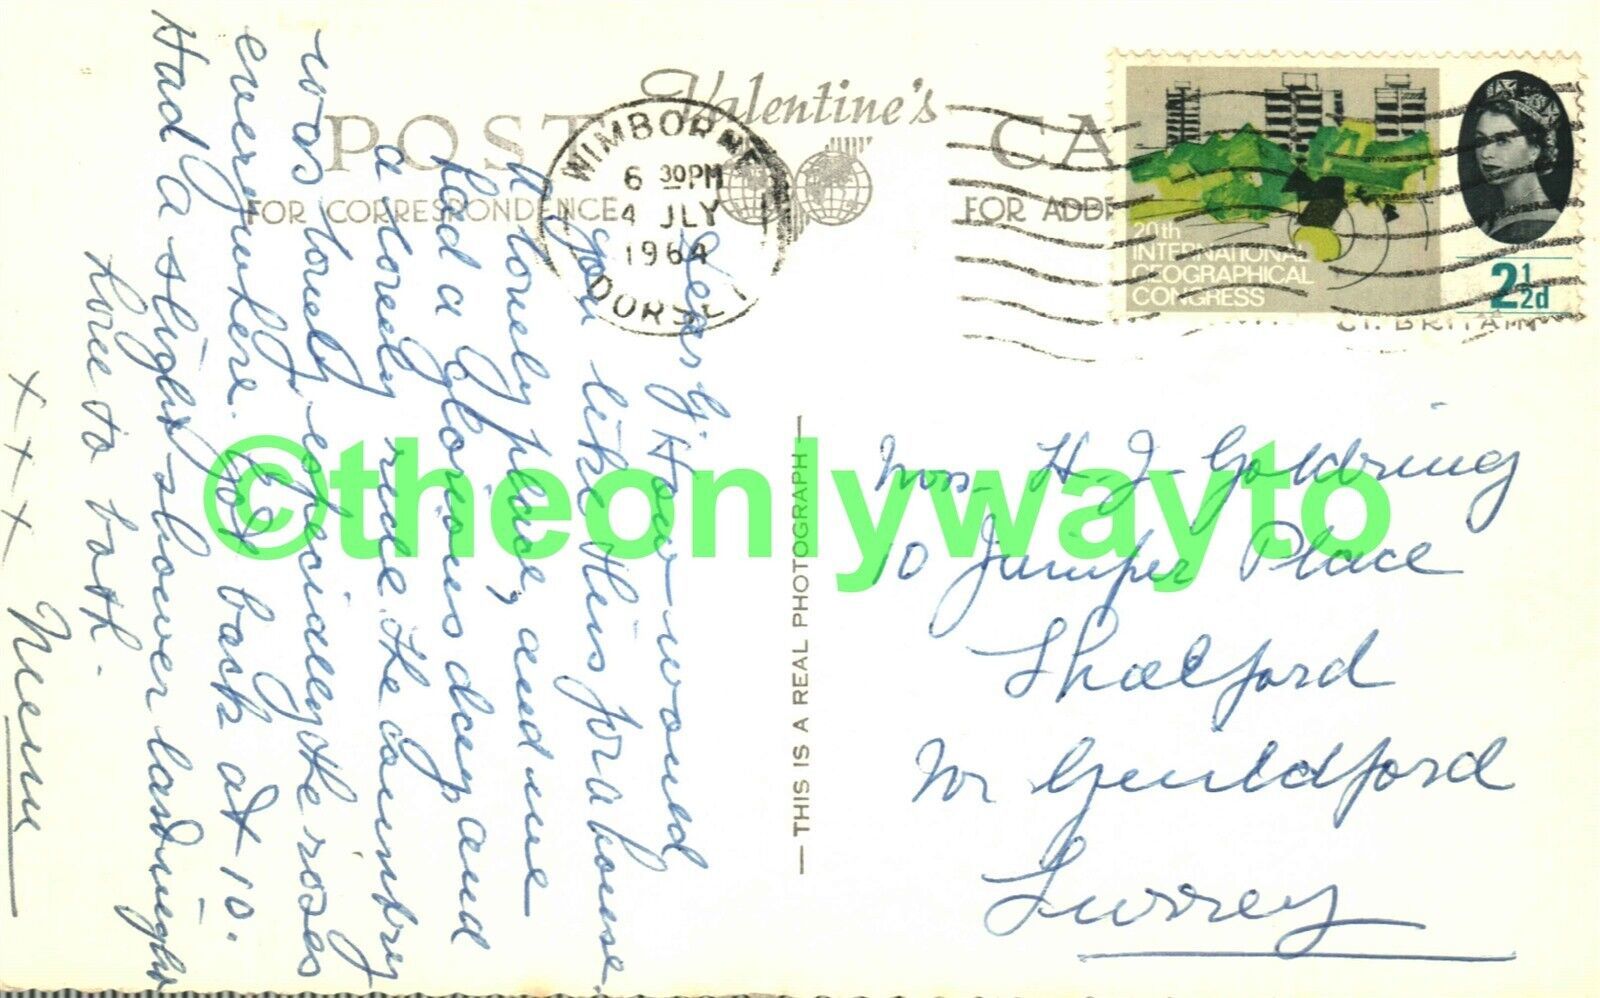 POST CA
Valentine's
FOR CORRESPONDENCE
FOR ADD
WIMBORNE
6 30PM
4 JLY
1964
DORSET
20th
INTERNATIONAL
GEOGRAPHICAL
CONGRESS
2½d
GT. BRITAIN
Dear G. How would
you like this for a house.
A lovely place, and we
had a glorious day and
a lovely ride. The country
was lovely, especially the roses
everywhere. Got back at 10.
Had a slight shower last night
Love to both.
x x x Mum
— THIS IS A REAL PHOTOGRAPH —
Mrs. H. J. Goldring
10 Juniper Place
Shalford
Nr Guildford
Surrey
©theonlywayto